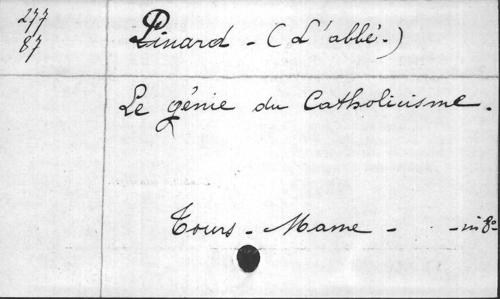 277
87
Pinard - (L'abbé.)
Le génie du Catholicisme.
Tours - Mame - - in 8º